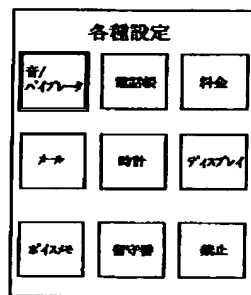 各種設定
音/
バイブレータ
電話帳
料金
メール
時計
ディスプレイ
ボイスメモ
留守番
禁止